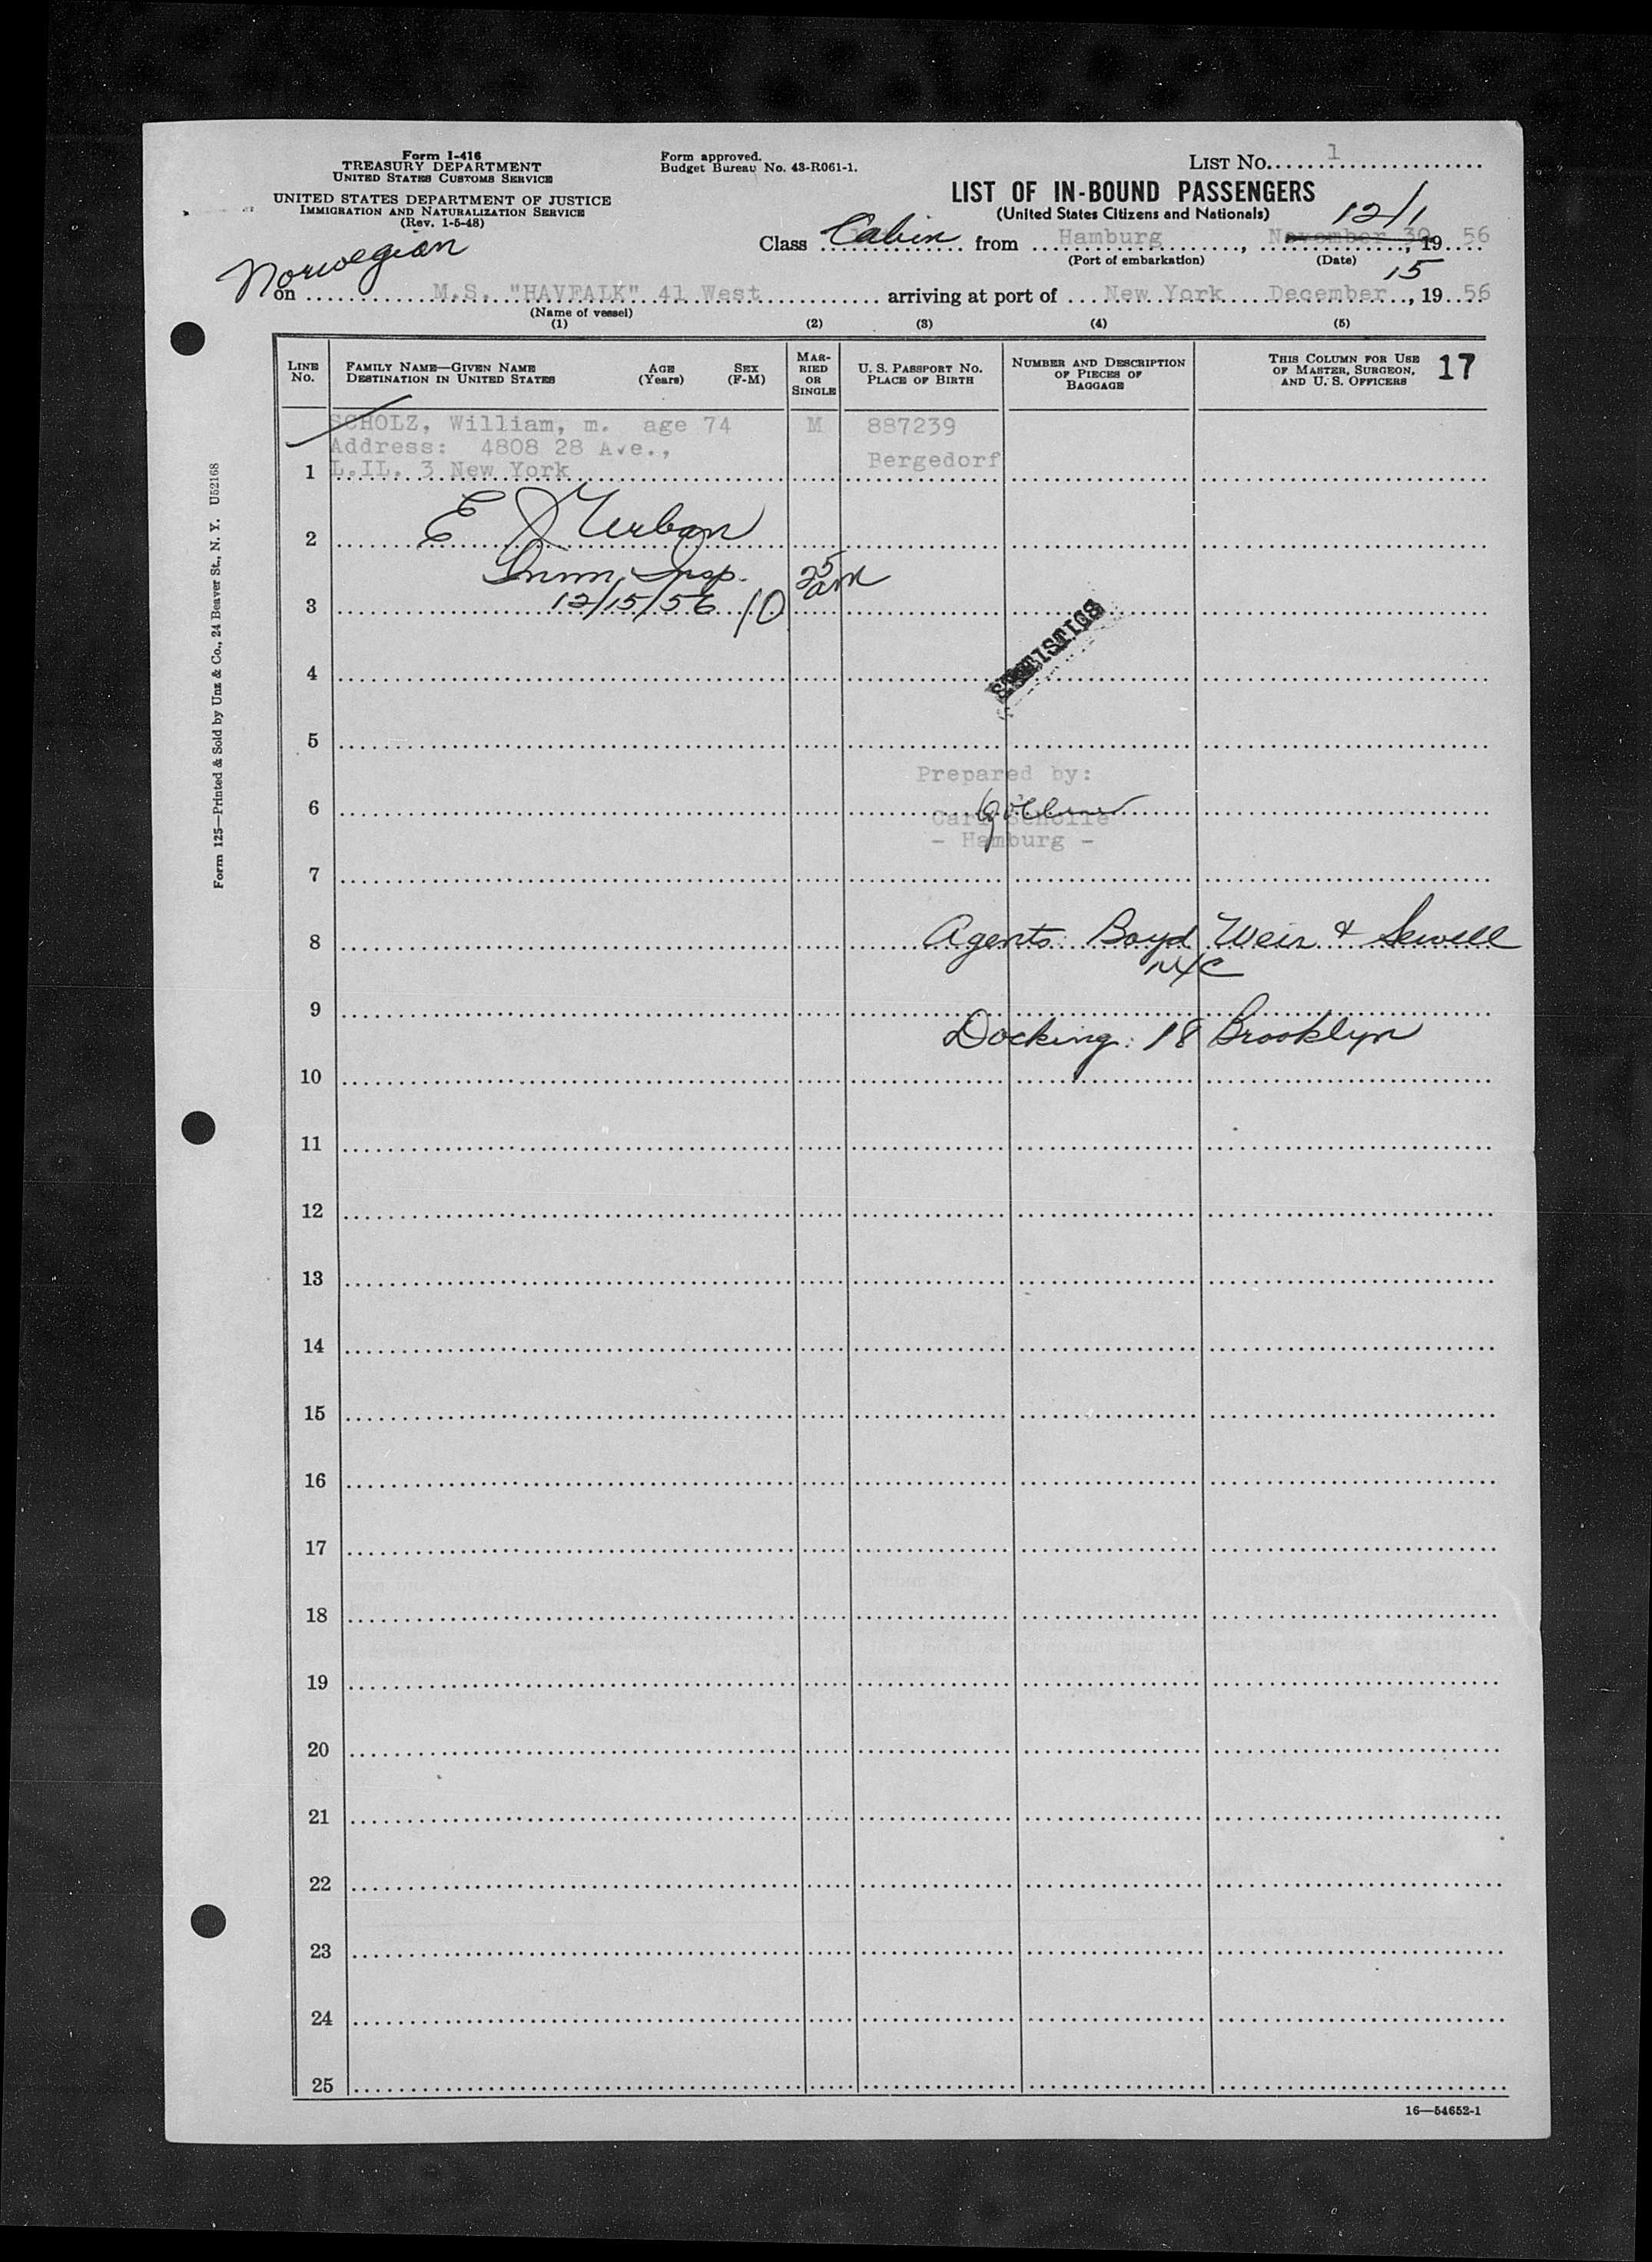 Form I-416
TREASURY DEPARTMENT
UNITED STATES CUSTOMS SERVICE
UNITED STATES DEPARTMENT OF JUSTICE
IMMIGRATION AND NATURALIZATION SERVICE
(Rev. 1-5-48)
Form approved.
Budget Bureau No. 43-R061-1.
LIST NO. 1
LIST OF IN-BOUND PASSENGERS
(United States Citizens and Nationals)
12/1
Class Cabin from Hamburg, November 30, 19 56
(Port of embarkation) (Date)
Norwegian
15
on M.S. "HAVFALK" 41 West arriving at port of New York December, 19 56
(Name of vessel)
(1) (2) (3) (4) (5)
LINE NO.
FAMILY NAME—GIVEN NAME
DESTINATION IN UNITED STATES
AGE (Years)
SEX (F-M)
MARRIED OR SINGLE
U. S. PASSPORT NO.
PLACE OF BIRTH
NUMBER AND DESCRIPTION OF PIECES OF BAGGAGE
THIS COLUMN FOR USE OF MASTER, SURGEON, AND U. S. OFFICERS
17
SCHOLZ, William, m. age 74 M 887239
Address: 4808 28 Ave.,
Bergedorf
1 L.IL. 3 New York
2 E J Urban
Imm. Insp. 25
3 12/15/56 10 am
STATISTICS
4
5
Prepared by:
6 Carl Scholle
- Hamburg -
7
8 Agents: Boyd Weir & Sewell
NYC
9
Docking: 18 Brooklyn
10
11
12
13
14
15
16
17
18
19
20
21
22
23
24
25
16—54652-1
Form 125—Printed & Sold by Unz & Co., 24 Beaver St., N. Y. U52168